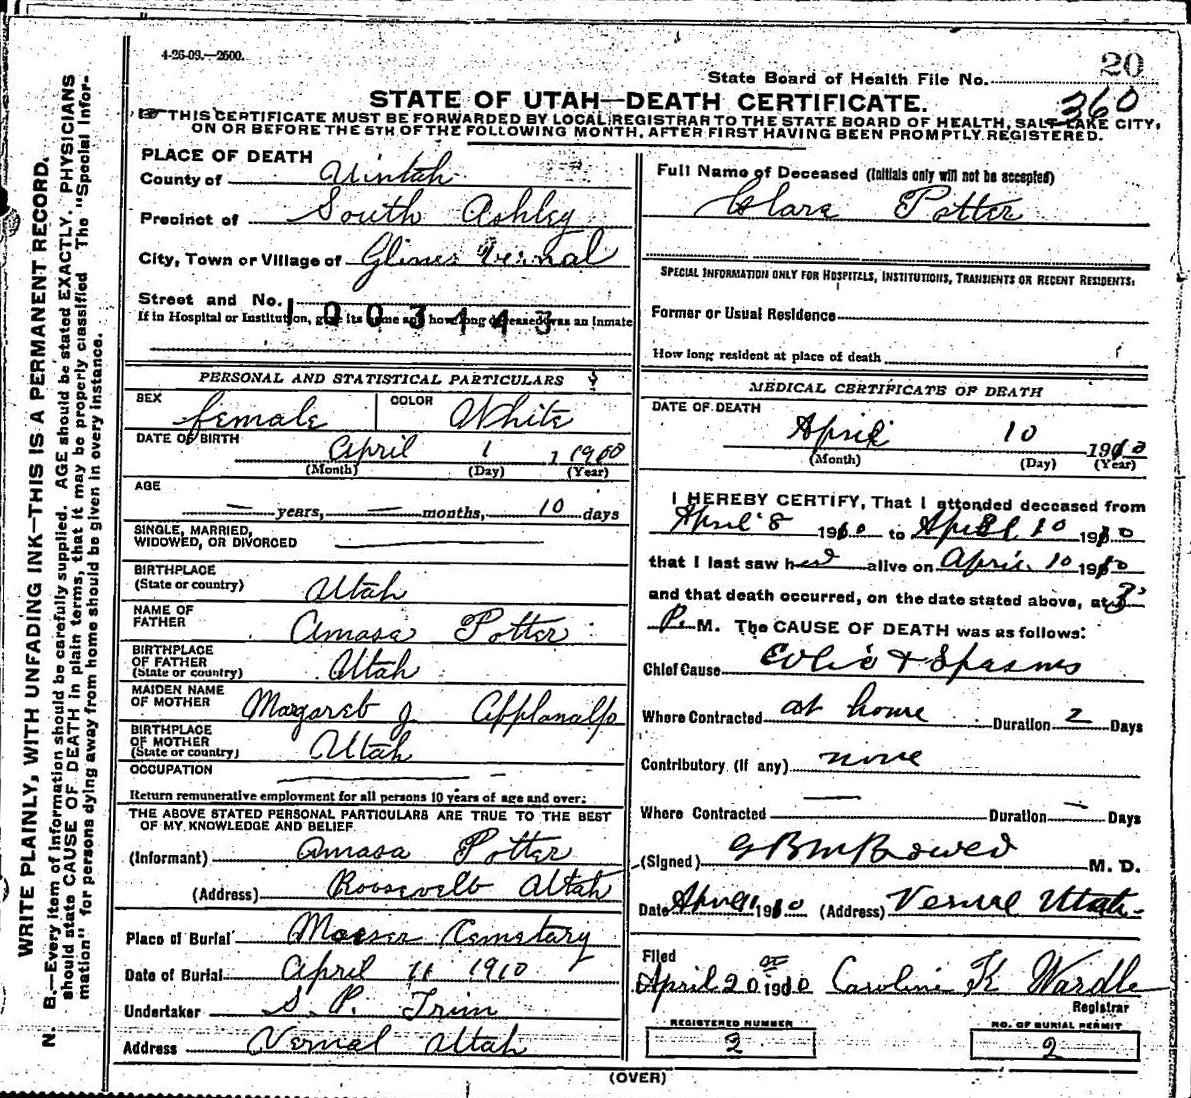 4-26-09.—2500.
20
State Board of Health File No.
360
STATE OF UTAH—DEATH CERTIFICATE.
THIS CERTIFICATE MUST BE FORWARDED BY LOCAL REGISTRAR TO THE STATE BOARD OF HEALTH, SALT LAKE CITY,
ON OR BEFORE THE 5TH OF THE FOLLOWING MONTH, AFTER FIRST HAVING BEEN PROMPTLY REGISTERED.
WRITE PLAINLY, WITH UNFADING INK—THIS IS A PERMANENT RECORD.
N. B.—Every item of information should be carefully supplied. AGE should be stated EXACTLY. PHYSICIANS
should state CAUSE OF DEATH in plain terms, that it may be properly classified. The "Special Infor-
mation" for persons dying away from home should be given in every instance.
PLACE OF DEATH
County of Uintah
Precinct of South Ashley
City, Town or Village of Glines Vernal
Street and No.
1003443
If in Hospital or Institution, give its name and how long deceased was an inmate
PERSONAL AND STATISTICAL PARTICULARS
SEX female COLOR White
DATE OF BIRTH April 1 1910
(Month) (Day) (Year)
AGE
— years, — months, 10 days
SINGLE, MARRIED,
WIDOWED, OR DIVORCED
BIRTHPLACE
(State or country) Utah
NAME OF
FATHER Amasa Potter
BIRTHPLACE
OF FATHER
(State or country) Utah
MAIDEN NAME
OF MOTHER Margareb J. Applanalp
BIRTHPLACE
OF MOTHER
(State or country) Utah
OCCUPATION
Return remunerative employment for all persons 10 years of age and over:
THE ABOVE STATED PERSONAL PARTICULARS ARE TRUE TO THE BEST
OF MY KNOWLEDGE AND BELIEF
(Informant) Amasa Potter
(Address) Roosevelt Utah
Place of Burial Maeser Cemetary
Date of Burial April 11 1910
Undertaker S. P. Trim
Address Vernal Utah
Full Name of Deceased (Initials only will not be accepted)
Clara Potter
SPECIAL INFORMATION ONLY FOR HOSPITALS, INSTITUTIONS, TRANSIENTS OR RECENT RESIDENTS:
Former or Usual Residence
How long resident at place of death
MEDICAL CERTIFICATE OF DEATH
DATE OF DEATH
April 10 1910
(Month) (Day) (Year)
I HEREBY CERTIFY, That I attended deceased from
April 8 1910 to April 10 1910
that I last saw her alive on April 10 1910
and that death occurred, on the date stated above, at 3
P. M. The CAUSE OF DEATH was as follows:
Chief Cause Colic + Spasms
Where Contracted at home Duration 2 Days
Contributory (if any) none
Where Contracted — Duration — Days
(Signed) M. D.
Date April 1910 (Address) Vernal Utah.
Filed
April 20 1910 Caroline K Wardle
Registrar
REGISTERED NUMBER
2
NO. OF BURIAL PERMIT
2
(OVER)